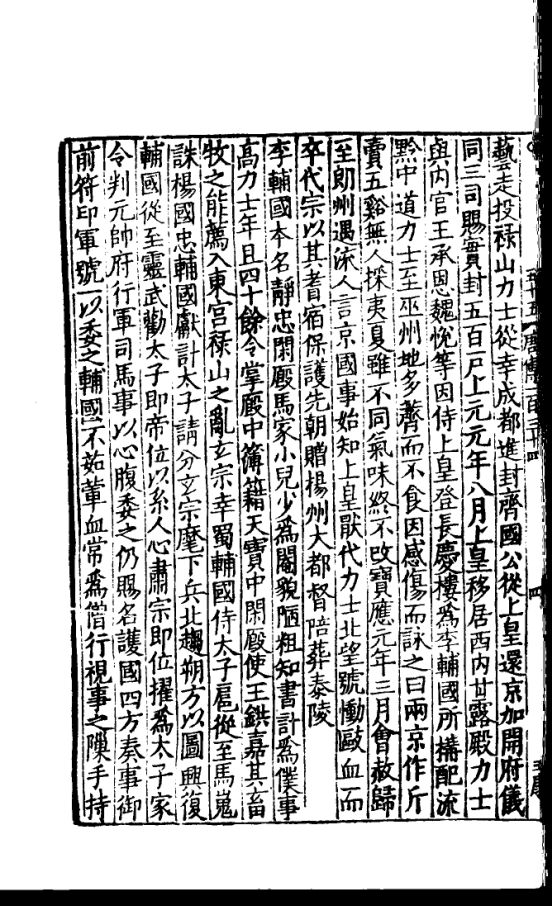 藝走投祿山力士從幸成都進封齊國公從上皇還京加開府儀
同三司賜實封五百戶上元元年八月上皇移居西內甘露殿力士
與內官王承恩魏悅等因侍上皇登長慶樓爲李輔國所構配流
黔中道力士至巫州地多薺而不食因感傷而詠之曰兩京作斤
賣五谿無人採夷夏雖不同氣味終不改寶應元年三月會赦歸
至朗州遇流人言京國事始知上皇厭代力士北望號慟嘔血而
卒代宗以其耆宿保護先朝贈揚州大都督陪葬泰陵
李輔國本名靜忠閑廄馬家小兒少爲閹貌陋粗知書計爲僕事
高力士年且四十餘令掌廄中簿籍天寶中閑廄使王鉷嘉其畜
牧之能薦入東宮祿山之亂玄宗幸蜀輔國侍太子扈從至馬嵬
誅楊國忠輔國獻計太子請分玄宗麾下兵北趨朔方以圖興復
輔國從至靈武勸太子即帝位以系人心肅宗即位擢爲太子家
令判元帥府行軍司馬事以心腹委之仍賜名護國四方奏事御
前符印軍號一以委之輔國不茹葷血常爲僧行視事之隙手持